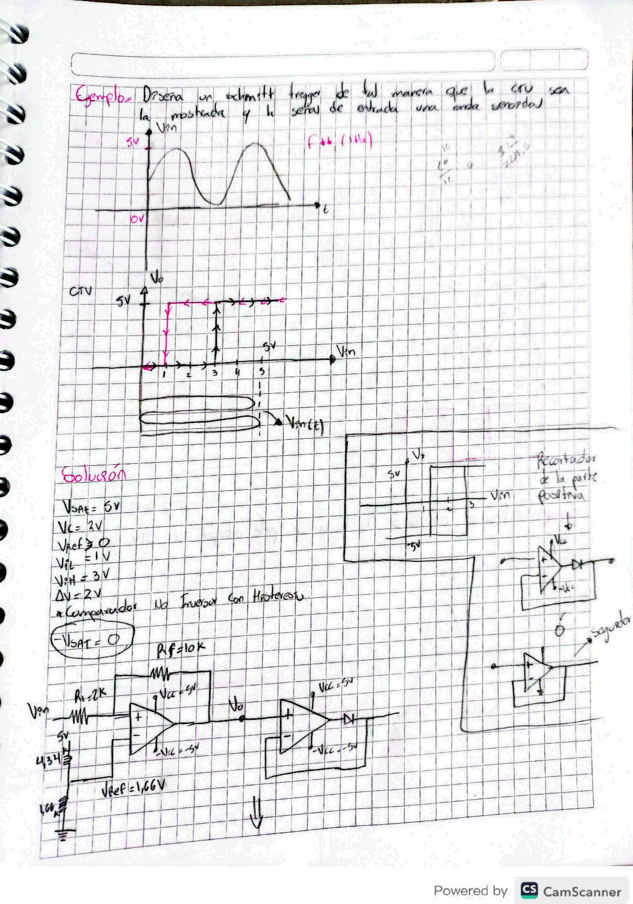 Ejemplo= Diseña un schmitt treger de tal manera que la CTV sea
la mostrada y la señal de entrada una onda senoidal
Vin
5V
0V
t
CTV
Vo
5V
5V
Vin
1 2 3 4 5
Vin(t)
Solución
VSAT = 5V
VC = 2V
VRef ≥ 0
ViL = 1V
ViH = 3V
ΔV = 2V
*Comparador No Inversor con Histeresis
-VSAT = 0
Vo
5V
-5V
1 2 3
Vin
Recortador
de la parte
positiva
Vcc
-Vcc
ó
seguidor
Rf=10K
R1=2K
Vin
Vcc=5V
-Vcc=-5V
Vo
Vcc=5V
-Vcc=-5V
5V
4,34
VRef=1,66V
Powered by CS CamScanner